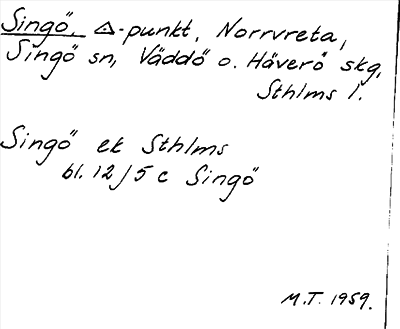 Singö, △-punkt, Norrvreta,
Singö sn, Väddö o. Häverö skg,
Sthlms l.
Singö ek Sthlms
bl. 12/5 c Singö
M.T. 1959.